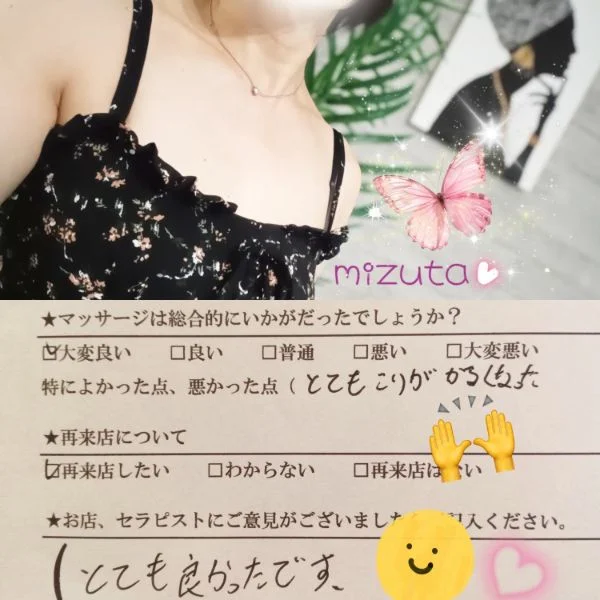 mizuta
★マッサージは総合的にいかがだったでしょうか？
☑大変良い □良い □普通 □悪い □大変悪い
特によかった点、悪かった点（とてもこりがかるくなった
★再来店について
☑再来店したい □わからない □再来店は ない
★お店、セラピストにご意見がございました 記入ください。
（とても良かったです。